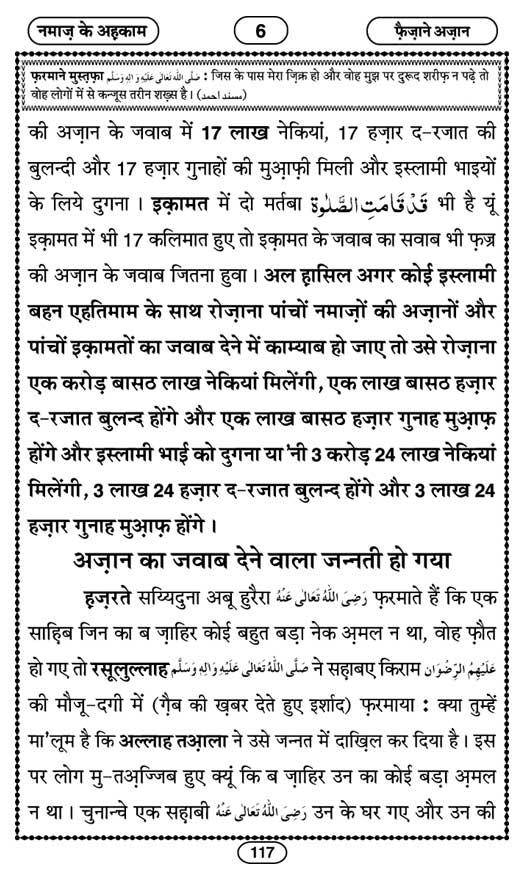 नमाज़ के अहकाम
6
फ़ैज़ाने अज़ान
फ़रमाने मुस्त़फ़ा صَلَّى اللهُ تَعَالٰى عَلَيْهِ وَاٰلِهٖ وَسَلَّم : जिस के पास मेरा ज़िक्र हो और वोह मुझ पर दुरूद शरीफ़ न पढ़े तो
वोह लोगों में से कन्जूस तरीन शख़्स है। (مسند احمد)
की अज़ान के जवाब में 17 लाख नेकियां, 17 हज़ार द-रजात की
बुलन्दी और 17 हज़ार गुनाहों की मुआ़फ़ी मिली और इस्लामी भाइयों
के लिये दुगना। इक़ामत में दो मर्तबा قَدْ قَامَتِ الصَّلٰوة भी है यूं
इक़ामत में भी 17 कलिमात हुए तो इक़ामत के जवाब का सवाब भी फ़ज्र
की अज़ान के जवाब जितना हुवा। अल ह़ासिल अगर कोई इस्लामी
बहन एहतिमाम के साथ रोज़ाना पांचों नमाज़ों की अज़ानों और
पांचों इक़ामतों का जवाब देने में काम्याब हो जाए तो उसे रोज़ाना
एक करोड़ बासठ लाख नेकियां मिलेंगी, एक लाख बासठ हज़ार
द-रजात बुलन्द होंगे और एक लाख बासठ हज़ार गुनाह मुआ़फ़
होंगे और इस्लामी भाई को दुगना या'नी 3 करोड़ 24 लाख नेकियां
मिलेंगी, 3 लाख 24 हज़ार द-रजात बुलन्द होंगे और 3 लाख 24
हज़ार गुनाह मुआ़फ़ होंगे।
अज़ान का जवाब देने वाला जन्नती हो गया
ह़ज़रते सय्यिदुना अबू हुरैरा رَضِىَ اللهُ تَعَالٰى عَنْهُ फ़रमाते हैं कि एक
साहिब जिन का ब ज़ाहिर कोई बहुत बड़ा नेक अ़मल न था, वोह फ़ौत
हो गए तो रसूलुल्लाह صَلَّى اللهُ تَعَالٰى عَلَيْهِ وَاٰلِهٖ وَسَلَّم ने सह़ाबए किराम عَلَيْهِمُ الرِّضْوَان
की मौजू-दगी में (ग़ैब की ख़बर देते हुए इर्शाद) फ़रमाया : क्या तुम्हें
मा'लूम है कि अल्लाह तआ़ला ने उसे जन्नत में दाख़िल कर दिया है। इस
पर लोग मु-तअ़ज्जिब हुए क्यूं कि ब ज़ाहिर उन का कोई बड़ा अ़मल
न था। चुनान्चे एक सह़ाबी رَضِىَ اللهُ تَعَالٰى عَنْهُ उन के घर गए और उन की
117